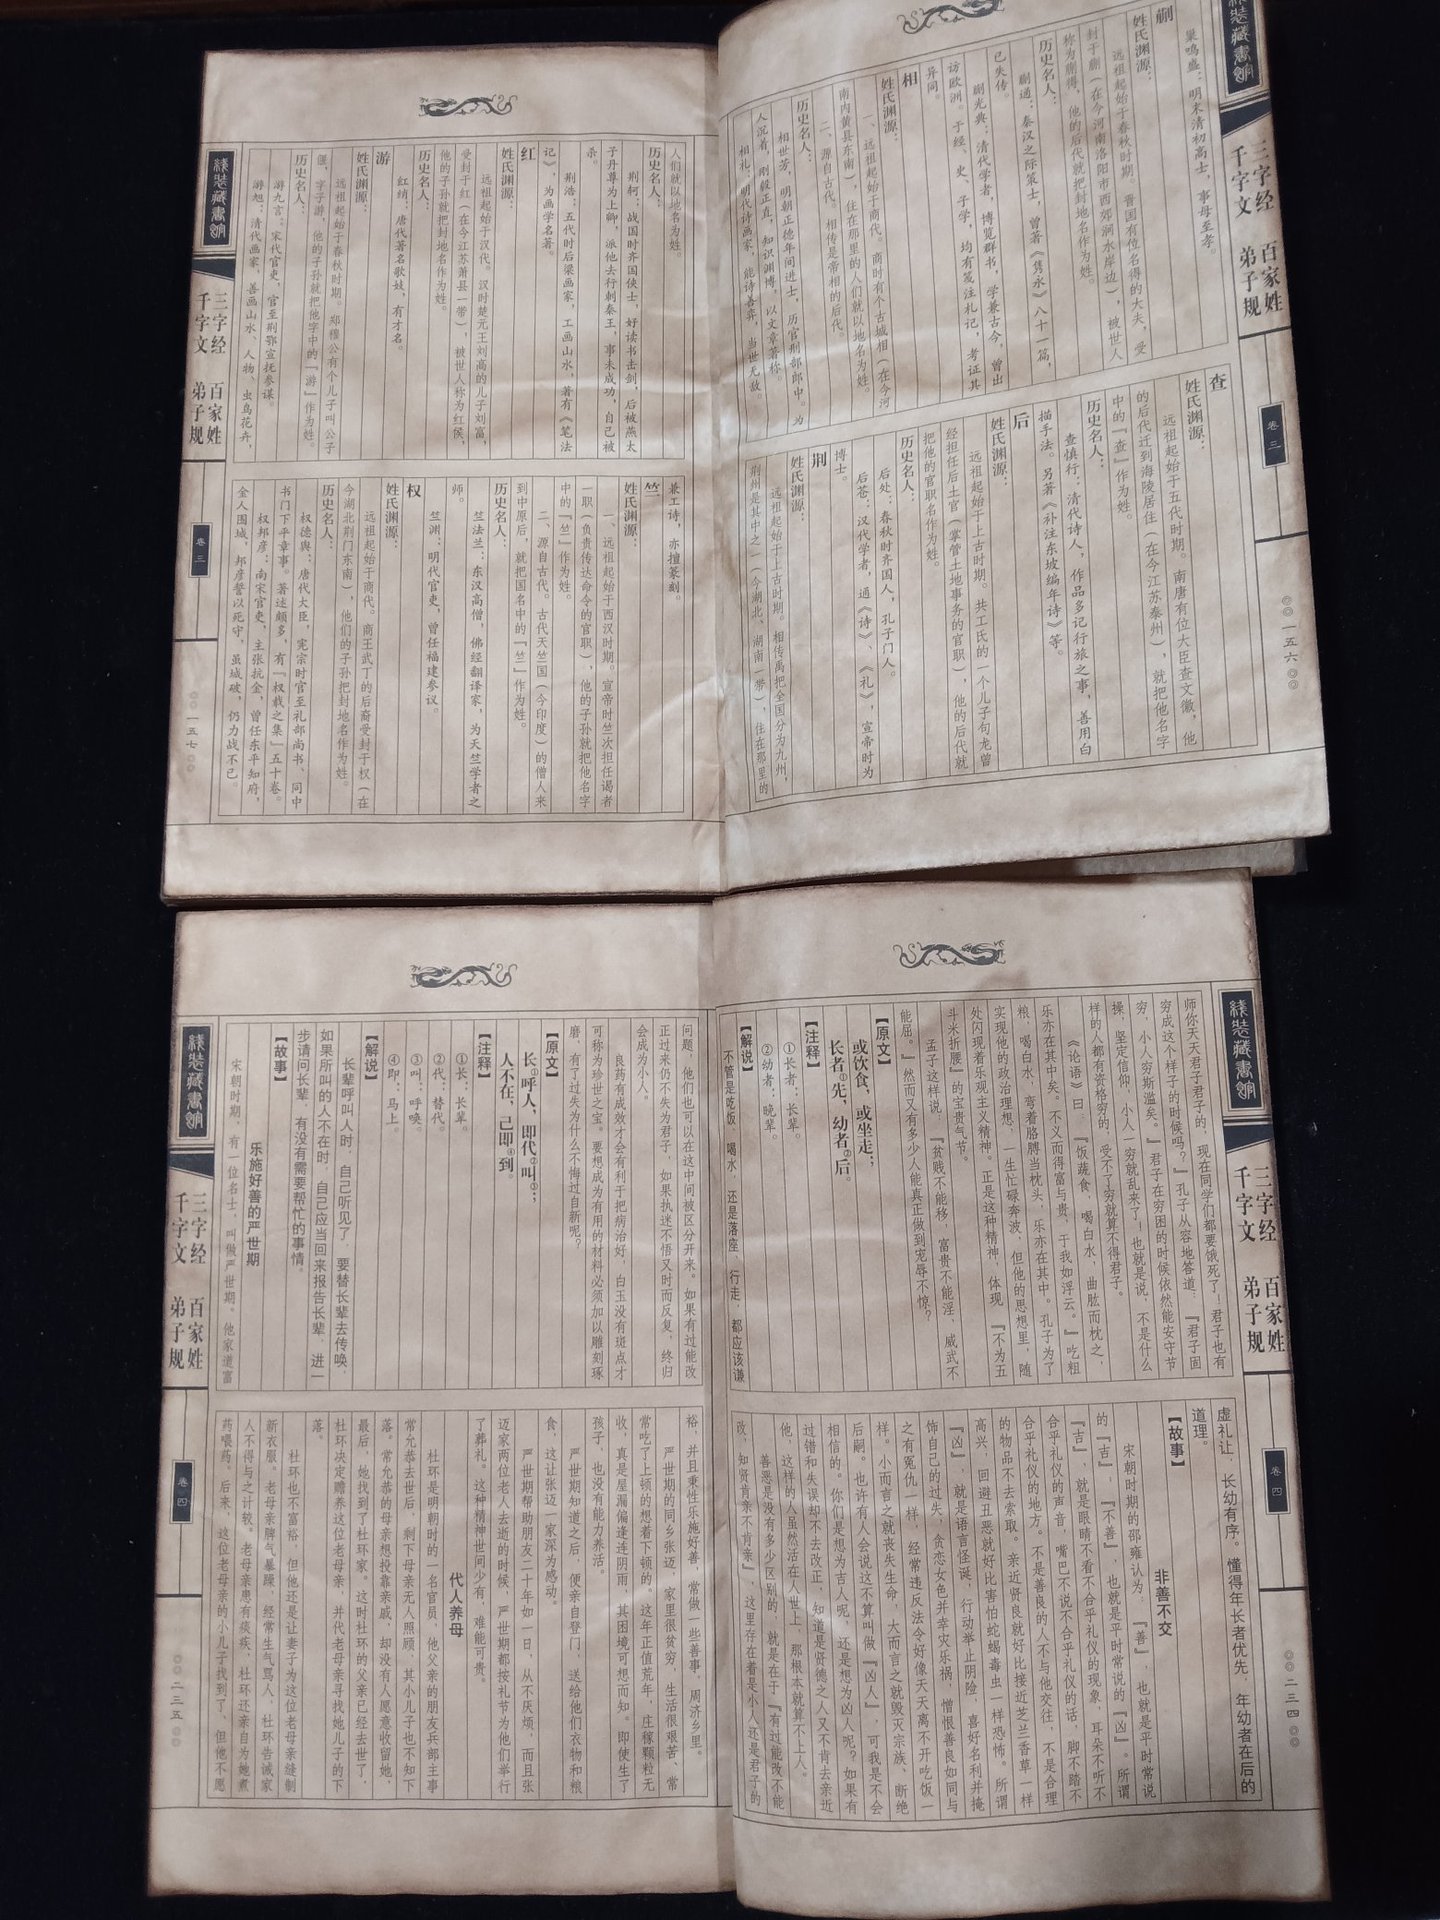 线装藏书馆
三字经 百家姓
千字文 弟子规
卷三
◎◎一五六◎◎
巢鸣盛：明末清初高士，事母至孝。
蒯
姓氏渊源：
远祖起始于春秋时期。晋国有位名得的大夫，受
封于蒯（在今河南洛阳市西郊涧水岸边），被世人
称为蒯得，他的后代就把封地名作为姓。
历史名人：
蒯通：秦汉之际策士，曾著《隽永》八十一篇，
已失传。
蒯光典：清代学者，博览群书，学兼古今，曾出
访欧洲。于经、史、子学，均有笺注札记，考证其
异同。
相
姓氏渊源：
一、远祖起始于商代。商时有个古城相（在今河
南内黄县东南），住在那里的人们就以地名为姓。
二、源自古代。相传是帝相的后代。
历史名人：
相世芳，明朝正德年间进士，历官刑部郎中。为
人沉着，刚毅正直，知识渊博，以文章著称。
相礼，明代诗画家，能诗善弈，当世无敌。
查
姓氏渊源：
远祖起始于五代时期。南唐有位大臣查文徽，他
的后代迁到海陵居住（在今江苏泰州），就把他名字
中的『查』作为姓。
历史名人：
查慎行：清代诗人，作品多记行旅之事，善用白
描手法。另著《补注东坡编年诗》等。
后
姓氏渊源：
远祖起始于上古时期。共工氏的一个儿子句龙曾
经担任后土官（掌管土地事务的官职），他的后代就
把他的官职名作为姓。
历史名人：
后处：春秋时齐国人，孔子门人。
后苍：汉代学者，通《诗》、《礼》，宣帝时为
博士。
荆
姓氏渊源：
远祖起始于上古时期。相传禹把全国分为九州，
荆州是其中之一（今湖北、湖南一带），住在那里的
人们就以地名为姓。
历史名人：
荆轲：战国时齐国侠士，好读书击剑，后被燕太
子丹尊为上卿，派他去行刺秦王，事未成功，自己被
杀。
荆浩：五代时后梁画家，工画山水，著有《笔法
记》，为画学名著。
红
姓氏渊源：
远祖起始于汉代。汉时楚元王刘高的儿子刘富，
受封于红（在今江苏萧县一带），被世人称为红侯，
他的子孙就把封地名作为姓。
历史名人：
红绡：唐代著名歌妓，有才名。
游
姓氏渊源：
远祖起始于春秋时期。郑穆公有个儿子叫公子
偃，字子游，他的子孙就把他字中的『游』作为姓。
历史名人：
游九言：宋代官吏，官至荆鄂宣抚参谋。
游旭：清代画家，善画山水、人物、虫鸟花卉，
兼工诗，亦擅篆刻。
竺
姓氏渊源：
一、远祖起始于西汉时期。宣帝时竺次担任谒者
一职（负责传达命令的官职），他的子孙就把他名字
中的『竺』作为姓。
二、源自古代。古代天竺国（今印度）的僧人来
到中原后，就把国名中的『竺』作为姓。
历史名人：
竺法兰：东汉高僧，佛经翻译家，为天竺学者之
师。
竺渊：明代官吏，曾任福建参议。
权
姓氏渊源：
远祖起始于商代。商王武丁的后裔受封于权（在
今湖北荆门东南），他们的子孙把封地名作为姓。
历史名人：
权德舆：唐代大臣，宪宗时官至礼部尚书、同中
书门下平章事。著述颇多，有『权载之集』五十卷。
权邦彦：南宋官吏，主张抗金，曾任东平知府，
金人围城，邦彦誓以死守，虽城破，仍力战不已。
线装藏书馆
三字经 百家姓
千字文 弟子规
卷三
◎◎一五七◎◎
线装藏书馆
三字经 百家姓
千字文 弟子规
卷四
◎◎二三四◎◎
师你天天君子君子的，现在同学们都要饿死了！君子也有
穷成这个样子的时候吗？』孔子从容地答道：『君子固
穷，小人穷斯滥矣。』君子在穷困的时候依然能安守节
操，坚定信仰，小人一穷就乱来了，也就是说，不是什么
样的人都有资格穷的，受不了穷就算不得君子。
《论语》曰：『饭蔬食，喝白水，曲肱而枕之，
乐亦在其中矣。不义而得富与贵，于我如浮云。』吃粗
粮，喝白水，弯着胳膊当枕头，乐亦在其中。孔子为了
实现他的政治理想，一生忙碌奔波，但他的思想里，随
处闪现着乐观主义精神。正是这种精神，体现『不为五
斗米折腰』的宝贵气节。
孟子这样说，『贫贱不能移，富贵不能淫，威武不
能屈。』然而又有多少人能真正做到宠辱不惊？
【原文】
或饮食，或坐走；
长者①先，幼者②后。
【注释】
①长者：长辈。
②幼者：晚辈。
【解说】
不管是吃饭、喝水，还是落座、行走，都应该谦
虚礼让，长幼有序。懂得年长者优先，年幼者在后的
道理。
【故事】
非善不交
宋朝时期的邵雍认为，『善』，也就是平时常说
的『吉』，『不善』，也就是平时常说的『凶』。所谓
『吉』，就是眼睛不看不合乎礼仪的现象，耳朵不听不
合乎礼仪的声音，嘴巴不说不合乎礼仪的话，脚不踏不
合乎礼仪的地方。不是善良的人不与他交往，不是合理
的物品不去索取。亲近贤良就好比接近芝兰香草一样
高兴，回避丑恶就好比害怕蛇蝎毒虫一样恐怖。所谓
『凶』，就是语言怪诞，行动举止阴险，喜好名利并掩
饰自己的过失，贪恋女色并幸灾乐祸，憎恨善良如同与
之有冤仇一样，经常违反法令好像天天离不开吃饭一
样。小而言之就丧失生命，大而言之就毁灭宗族、断绝
后嗣。也许有人会说这不算叫做『凶人』，可我是不会
相信的。你们是想为吉人呢，还是想为凶人呢？如果有
过错和失误却不去改正，知道是贤德之人又不肯去亲近
他，这样的人虽然活在人世上，那根本就算不上人。
善恶是没有多少区别的，就是在于『有过能改不能
改，知贤肯亲不肯亲』，这里存在着是小人还是君子的
问题，他们也可以在这中间被区分开来。如果有过能改
正过来仍不失为君子，如果执迷不悟又时而反复，终归
会成为小人。
良药有成效才会有利于把病治好，白玉没有斑点才
可称为珍世之宝。要想成为有用的材料必须加以雕刻琢
磨，有了过失为什么不悔过自新呢？
【原文】
长①呼人，即代②叫③；
人不在，己即④到。
【注释】
①长：长辈。
②代：替代。
③叫：呼唤。
④即：马上。
【解说】
长辈呼叫人时，自己听见了，要替长辈去传唤，
如果所叫的人不在时，自己应当回来报告长辈，进一
步请问长辈，有没有需要帮忙的事情。
【故事】
乐施好善的严世期
宋朝时期，有一位名士，叫做严世期。他家道富
裕，并且秉性乐施好善，常做一些善事，周济乡里。
严世期的同乡张迈，家里很贫穷，生活很艰苦，常
常吃了上顿的想着下顿的。这年正值荒年，庄稼颗粒无
收，真是屋漏偏逢连阴雨，其困境可想而知。即使生了
孩子，也没有能力养活。
严世期知道之后，便亲自登门，送给他们衣物和粮
食，这让张迈一家深为感动。
严世期帮助朋友二十年如一日，从不厌烦，而且张
迈家两位老人去逝的时候，严世期都按礼节为他们举行
了葬礼。这种精神世间少有，难能可贵。
代人养母
杜环是明朝时的一名官员，他父亲的朋友兵部主事
常允恭去世后，剩下母亲无人照顾，其小儿子也不知下
落。常允恭的母亲想投靠亲戚，却没有人愿意收留她，
最后，她找到了杜环家。这时杜环的父亲已经去世了，
杜环决定赡养这位老母亲，并代老母亲寻找她儿子的下
落。
杜环也不富裕，但他还是让妻子为这位老母亲缝制
新衣服。老母亲脾气暴躁，经常生气骂人，杜环告诫家
人不得与之计较。老母亲患有痰疾，杜环还亲自为她煮
药喂药。后来，这位老母亲的小儿子找到了，但他不愿
线装藏书馆
三字经 百家姓
千字文 弟子规
卷四
◎◎二三五◎◎